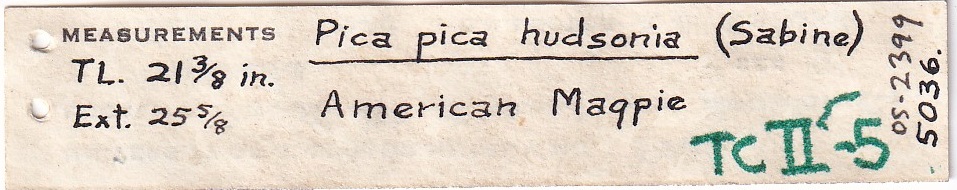 MEASUREMENTS
TL. 21 3/8 in.
Ext. 25 5/8
Pica pica hudsonia (Sabine)
American Magpie
TC II-5
OS-2399
5036.